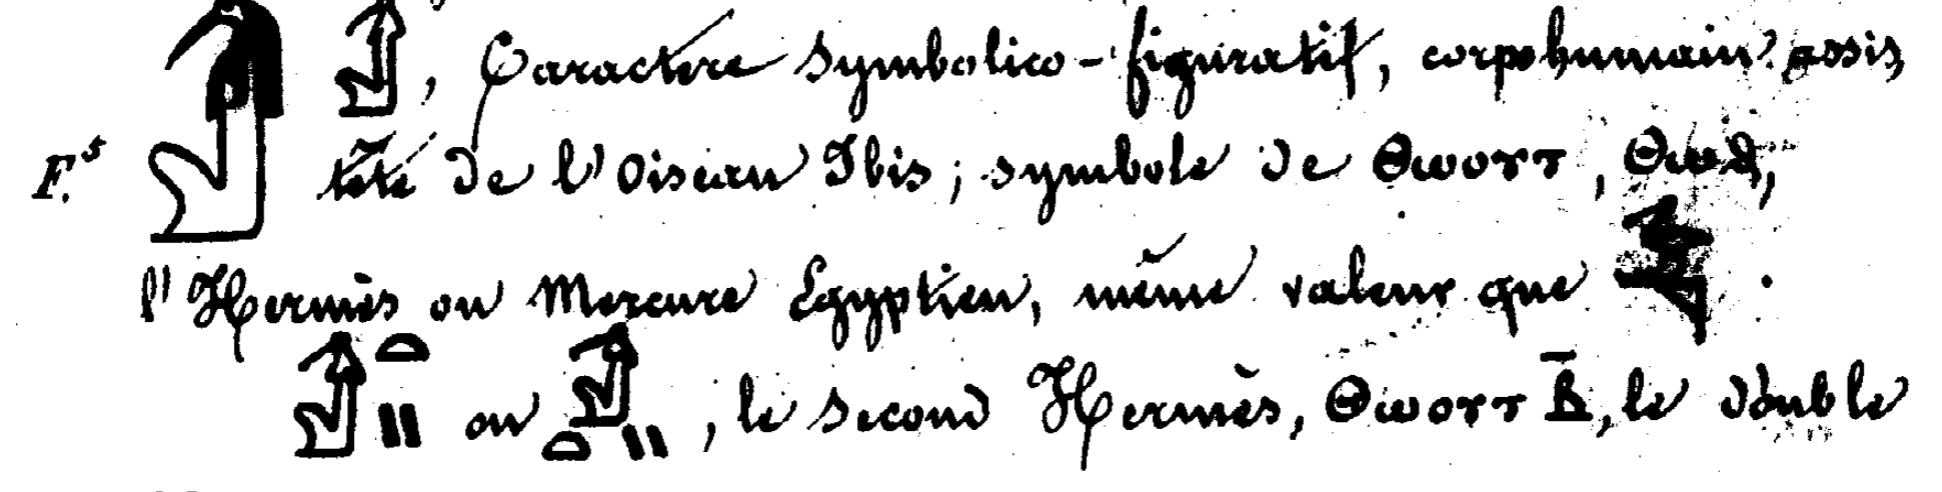 , Caractère symbolico-figuratif, corps humain assis
F.s tête de l'oiseau Ibis; symbole de Ⲑⲱⲟⲩⲧ,
l'Hermès ou Mercure Egyptien, même valeur que
ou , le second Hermès, Ⲑⲱⲟⲩⲧ Ⲃ̅, le double